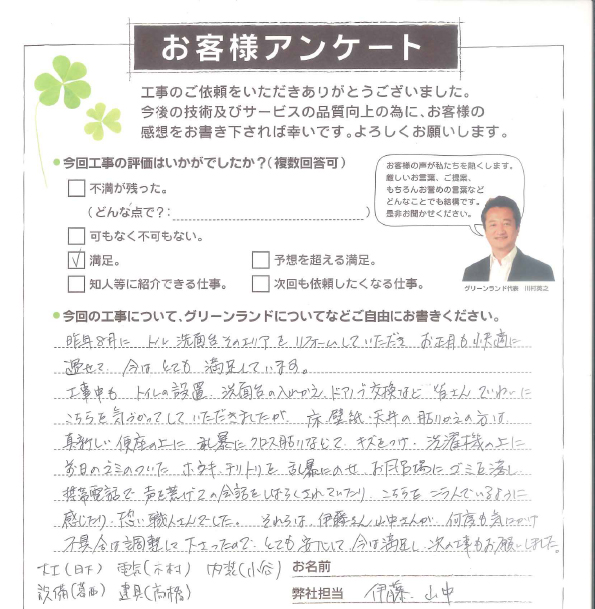 お客様アンケート
工事のご依頼をいただきありがとうございました。
今後の技術及びサービスの品質向上の為に、お客様の
感想をお書き下されば幸いです。よろしくお願いします。
●今回工事の評価はいかがでしたか?(複数回答可)
お客様の声が私たちを熱くします。
厳しいお言葉、ご提案、
もちろんお誉めの言葉など
どんなことでも結構です。
是非お聞かせください。
□不満が残った。
(どんな点で?: )
□可もなく不可もない。
☑満足。 □予想を超える満足。
□知人等に紹介できる仕事。 □次回も依頼したくなる仕事。
グリーンランド代表 川村英之
●今回の工事について、グリーンランドについてなどご自由にお書きください。
昨年8月に トイレ 洗面台 そのエリア を リフォームしていただき お正月も快適に
過せて 今は とても 満足しています。
工事中も トイレの設置 洗面台の入れかえ、ドアノブ交換など 皆さん ていねいに
こちらを気づかってして いただきましたが、床、壁紙・天井の貼りかえの方は
真新しい便座の上に 乱暴にクロス貼りなどで キズをつけ、洗濯機の上に
前日のゴミのついた ホウキ、チリトリを 乱暴にのせ お風呂場に ゴミを落し
携帯電話で 声を荒げての会話をしばらくされていたり こちらを こらんでいるように
感じたり 恐い職人さんでした。 それらは 伊藤さん 山中さんが 何度も気にかけ
不具合は調整して下さったので とても安心して 今は満足し 次の工事もお願いしました。
大工(日下) 電気(木村) 内装(小谷) お名前
設備(  ) 建具(高橋) 弊社担当 伊藤、山中